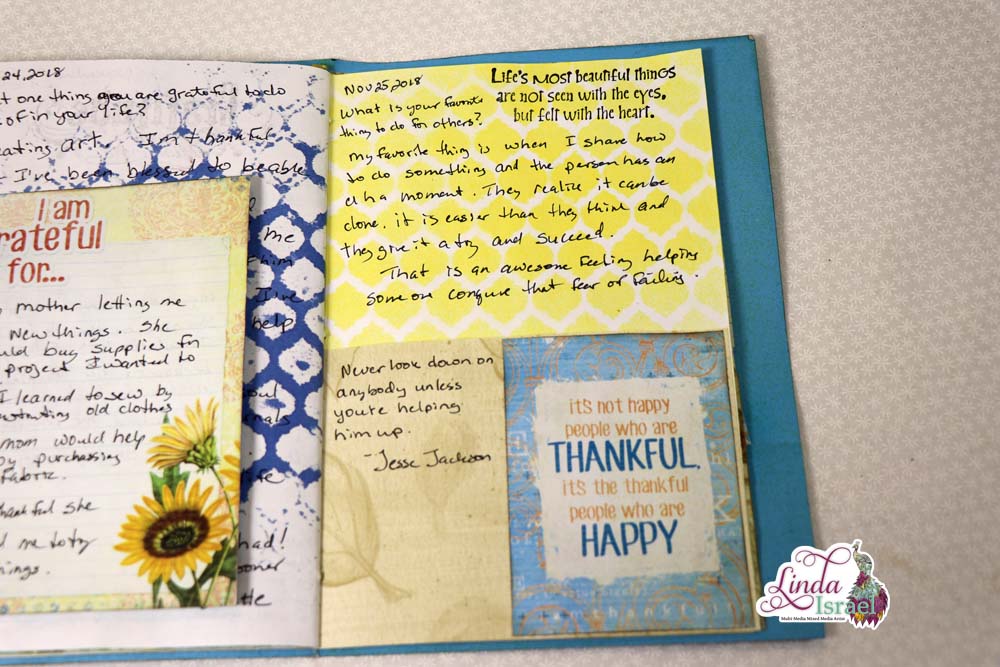 24, 2018
t one thing you are grateful to do
of in your life?
eating art. I'm thankful
I've been blessed to beable
me
him
I've
help
oul
nals
ife
had!
ooner
tle
I am
rateful
for...
mother letting me
new things. She
uld buy supplies for
project I wanted to
I learned to sew by
old clothes
mom would help
by purchassing
Fabric.
hankful she
d me to try
hings.
Nov 25, 2018
Life's most beautiful things
are not seen with the eyes,
but felt with the heart.
What is your favorite
thing to do for others?
my favorite thing is when I share how
to do something and the person has an
ah a moment. They realize it can be
done, it is easier than they think and
they give it a try and succeed.
That is an awesome feeling helping
someone conqure that fear of failing.
Never look down on
anybody unless
you're helping
him up.
-Jesse Jackson
its not happy
people who are
THANKFUL,
its the thankful
people who are
HAPPY
thankful
Linda
Israel
Multi Media Mixed Media Artist